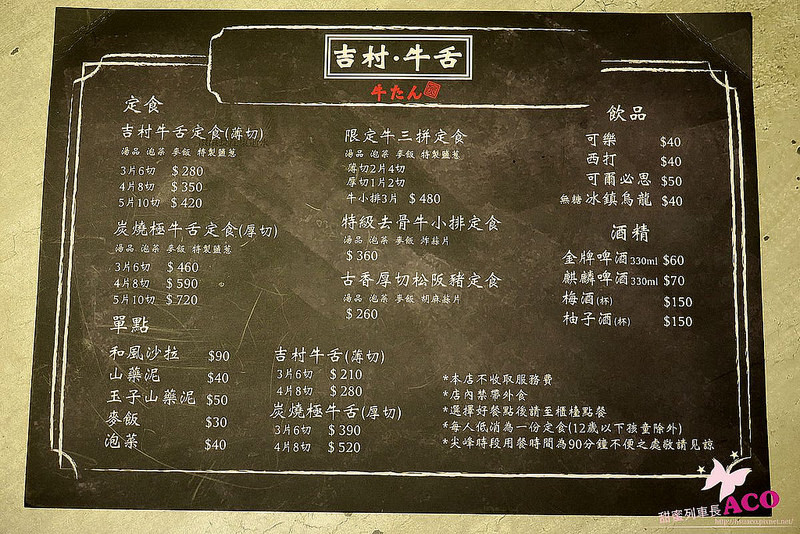 吉村·牛舌
牛たん
定食
吉村牛舌定食(薄切)
湯品 泡菜 麥飯 特製鹽蔥
3片6切 $280
4片8切 $350
5片10切 $420
炭燒極牛舌定食(厚切)
湯品 泡菜 麥飯 特製鹽蔥
3片6切 $460
4片8切 $590
5片10切 $720
限定牛三拼定食
湯品 泡菜 麥飯 特製鹽蔥
薄切2片4切
厚切1片2切
牛小排3片 $480
特級去骨牛小排定食
湯品 泡菜 麥飯 炸蒜片
$360
古香厚切松阪豬定食
湯品 泡菜 麥飯 胡麻蒜片
$260
飲品
可樂 $40
西打 $40
可爾必思 $50
無糖 冰鎮烏龍 $40
酒精
金牌啤酒330ml $60
麒麟啤酒330ml $70
梅酒(杯) $150
柚子酒(杯) $150
單點
和風沙拉 $90
山藥泥 $40
玉子山藥泥 $50
麥飯 $30
泡菜 $40
吉村牛舌(薄切)
3片6切 $210
4片8切 $280
炭燒極牛舌(厚切)
3片6切 $390
4片8切 $520
*本店不收取服務費
*店內禁帶外食
*選擇好餐點後請至櫃檯點餐
*每人低消為一份定食(12歲以下孩童除外)
*尖峰時段用餐時間為90分鐘不便之處敬請見諒
甜蜜列車長ACO